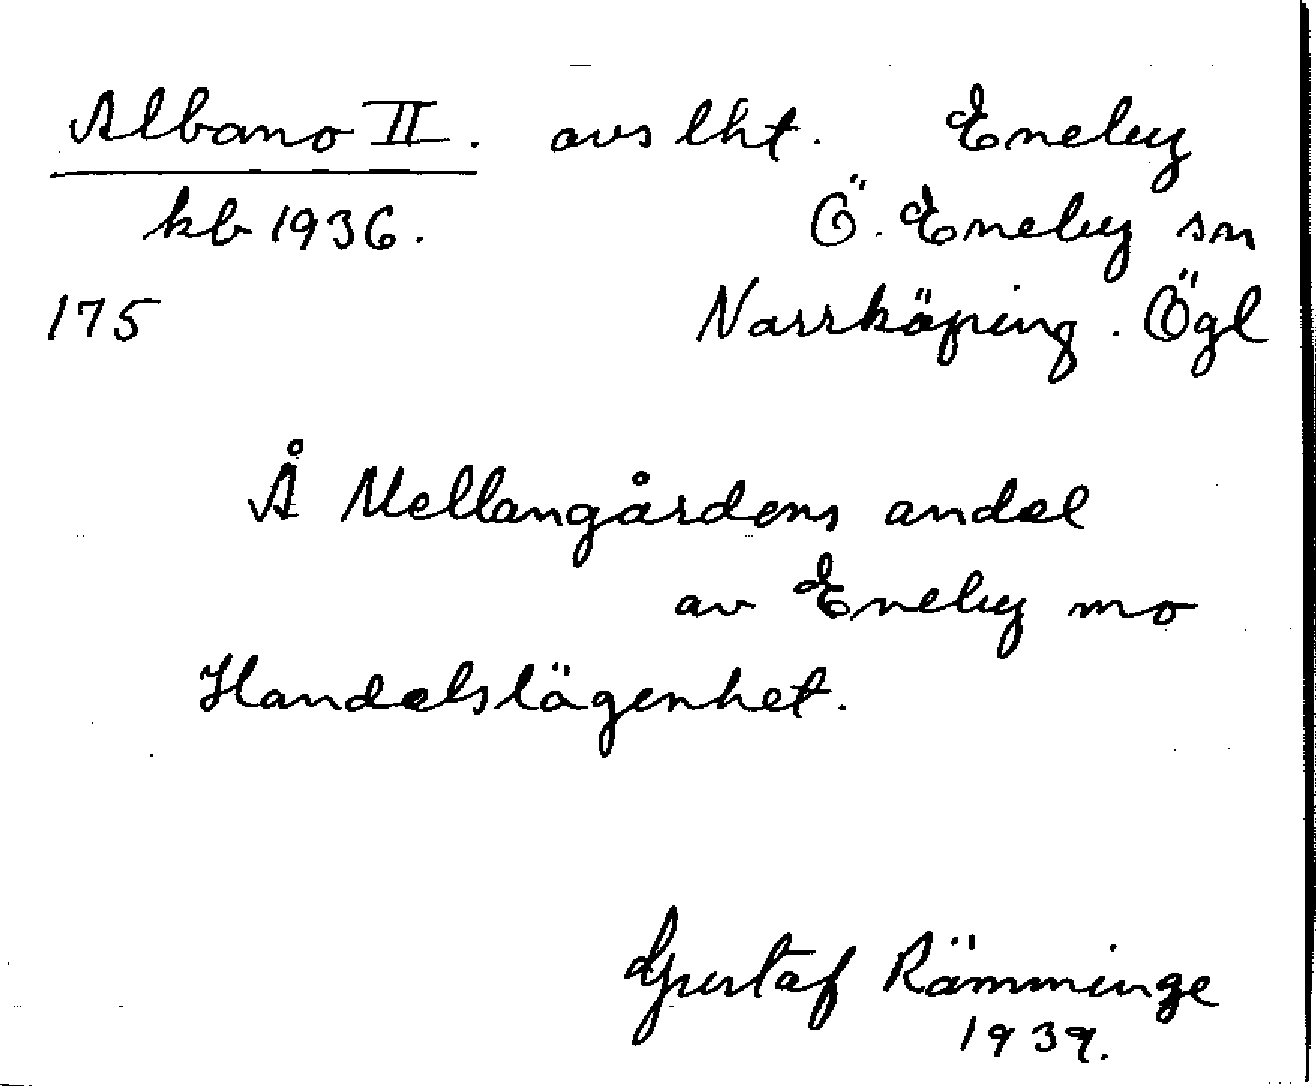 Albano II. avs lht. Eneby
kb 1936. Ö. Eneby sn
175 Norrköping. Ögl
Å Mellangårdens andel
av Eneby mo
Handelslägenhet.
Gustaf Rämminge
1939.